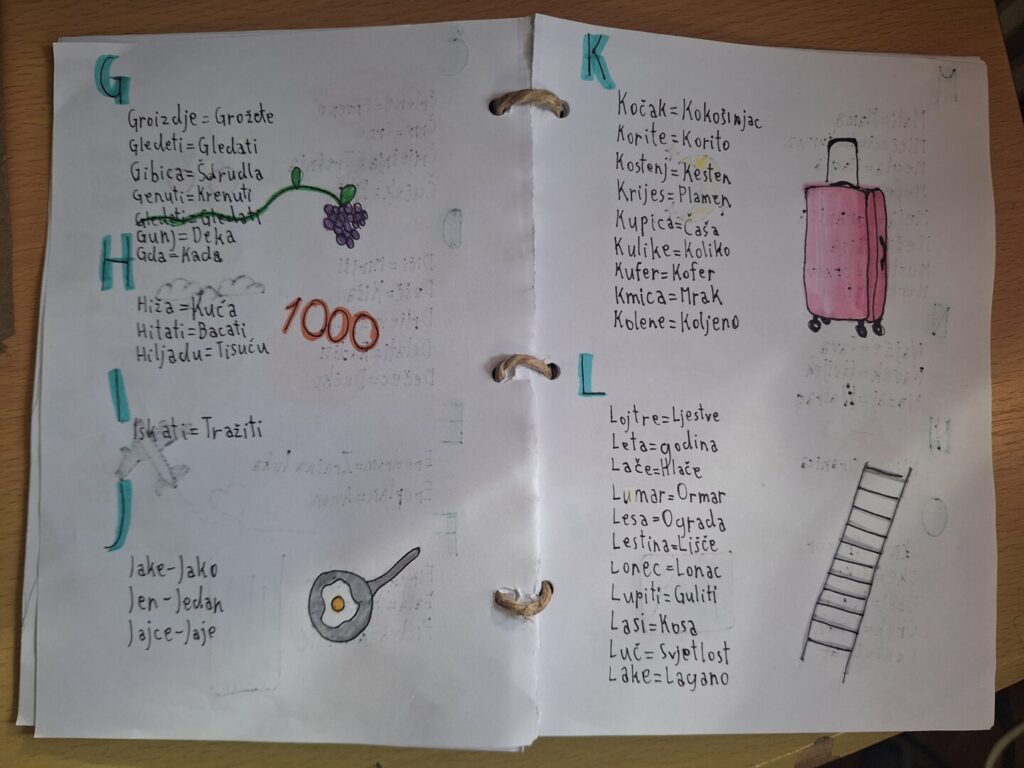 G
Groizdje = Grožđe
Gledeti = Gledati
Gibica = Štrudla
Genuti = Krenuti
Gledeti = Gledati
Gunj = Deka
Gda = Kada
H
Hiža = Kuća
Hitati = Bacati
Hiljadu = Tisuću
1000
I
Iskati = Tražiti
J
Jake-Jako
Jen-Jedan
Jajce-Jaje
K
Kočak = Kokošinjac
Korite = Korito
Kostenj = Kesten
Krijes = Plamen
Kupica = Čaša
Kulike = Koliko
Kufer = Kofer
Kmica = Mrak
Kolene = Koljeno
L
Lojtre = Ljestve
Leta = godina
Lače = Hlače
Lumar = Ormar
Lesa = Ograda
Lestina = Lišče
Lonec = Lonac
Lupiti = Guliti
Lasi = Kosa
Luč = Svjetlost
Lake = Lagano